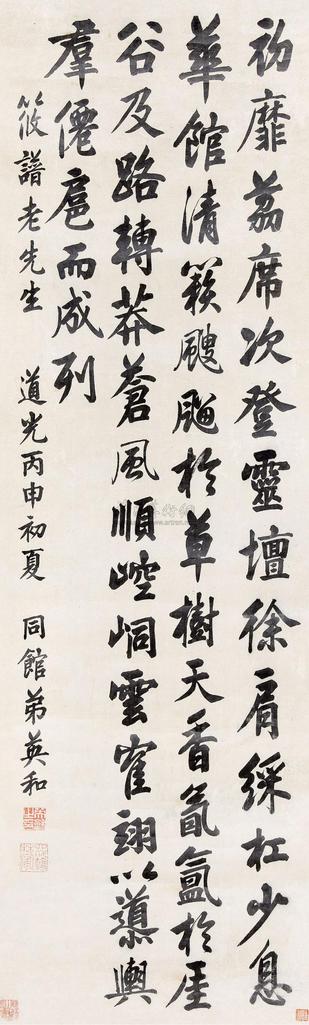 初靡荔席次登靈壇徐肩綵杠少息
華館清籁颼飀於草樹天香氤氳於厓
谷及路轉莽蒼風順崆峒雲寉翊以導輿
羣僊扈而成列
筱譜老先生 道光丙申初夏 同館弟英和